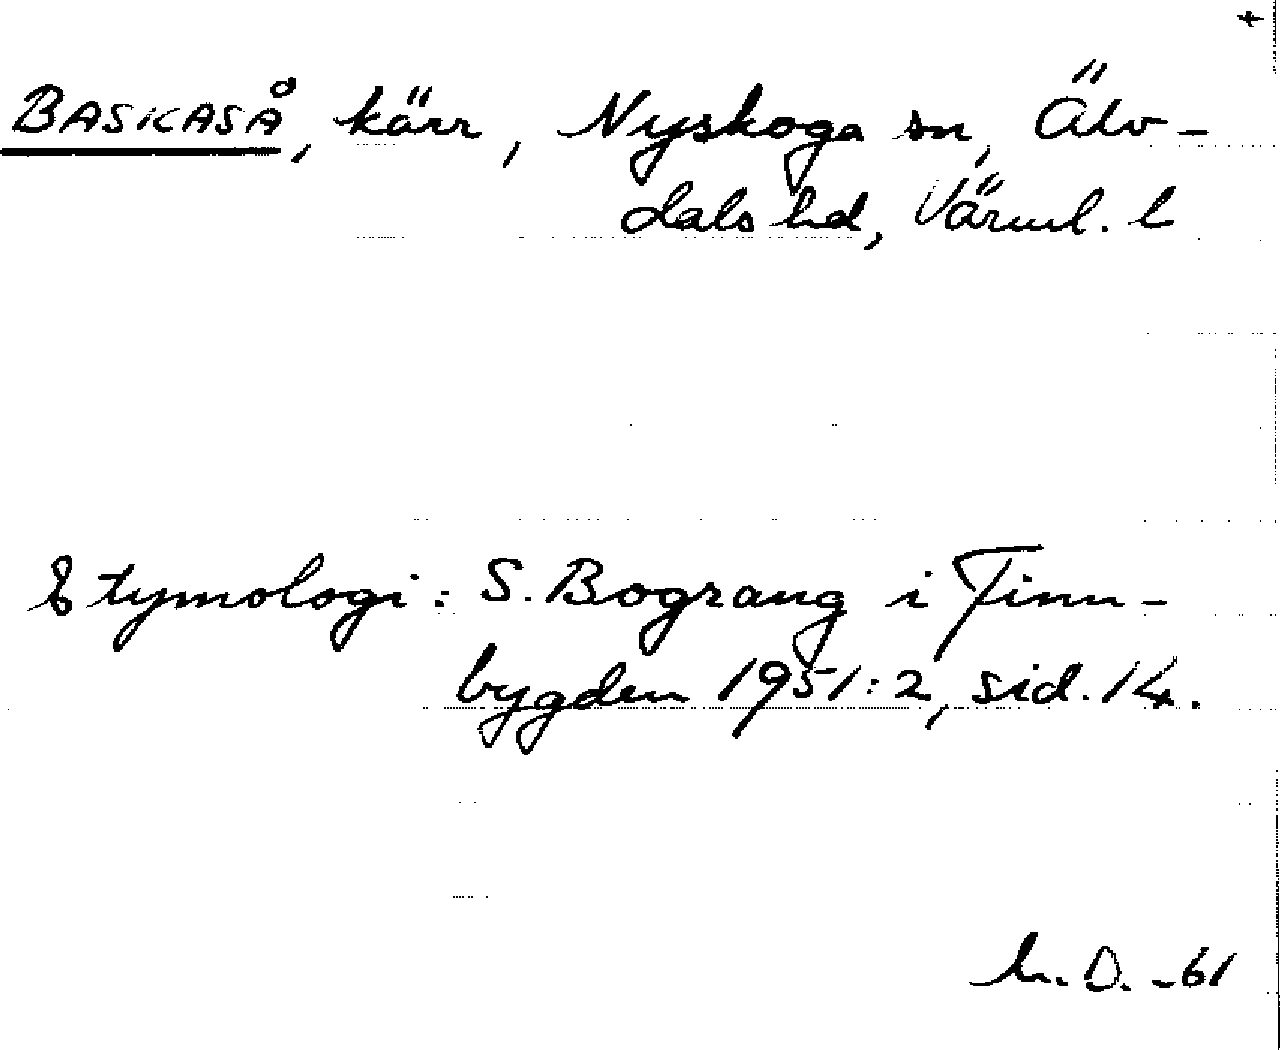 +
BASKASÅ, kärr, Nyskoga sn, Älv-
dals hd, Värml. l
Etymologi: S. Bograng i Finn-
bygden 1951:2, sid. 14.
h. D. -61